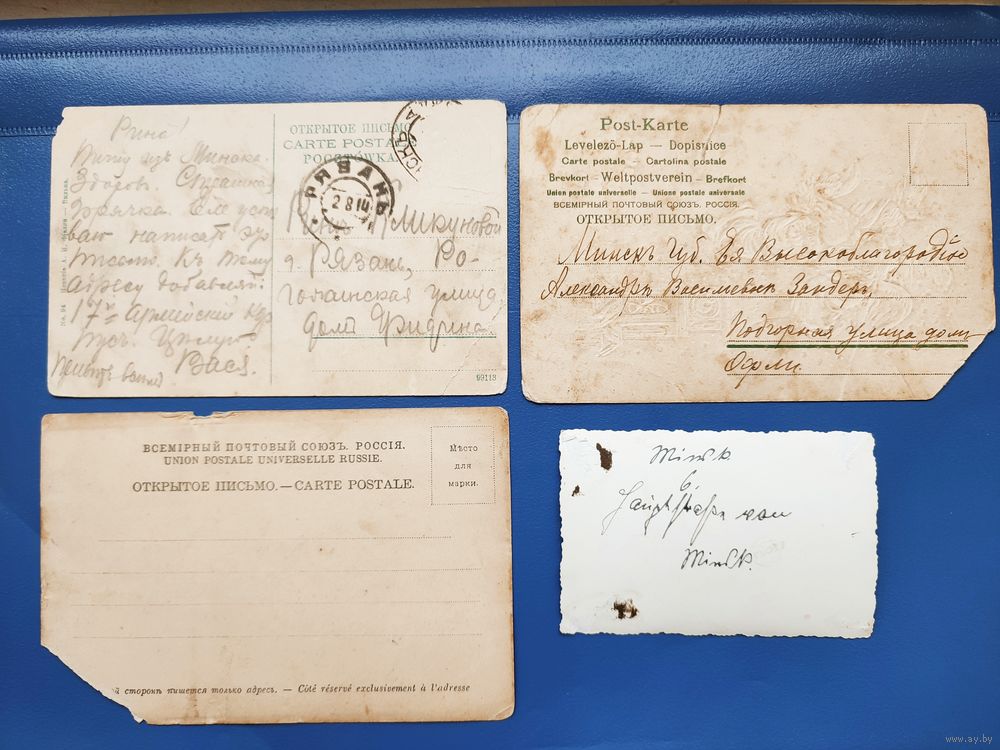 Рина!
Пишу изъ Минска.
Здоровъ. Страшная
горячка.
ваю написать
Къ тому
адресу добавляй:
17й Армейскій
Цѣлую
Вася.
No. 94
ОТКРЫТОЕ ПИСЬМО
CARTE POSTALE
POCZTÓWKA
РЯЗАНЬ
2 8 14
г. Рязань, Ро-
улица
домъ Фидрина.
99118
Post-Karte
Levelezö-Lap — Dopisnice
Carte postale — Cartolina postale
Brevkort — Weltpostverein — Brefkort
Union postale universelle — Unione postale universale
ВСЕМІРНЫЙ ПОЧТОВЫЙ СОЮЗЪ. РОССІЯ.
ОТКРЫТОЕ ПИСЬМО.
Минскъ Губ. Его Высокоблагородіе
Александръ Васильевичъ Зандеръ,
Подгорная улица домъ
Офли.
ВСЕМІРНЫЙ ПОЧТОВЫЙ СОЮЗЪ. РОССІЯ.
UNION POSTALE UNIVERSELLE RUSSIE.
ОТКРЫТОЕ ПИСЬМО.—CARTE POSTALE.
Мѣсто
для
марки.
й сторонѣ пишется только адресъ. — Côté réservé exclusivement à l'adresse
Minsk.
6.
Hauptstraße von
Minsk.
www.ay.by